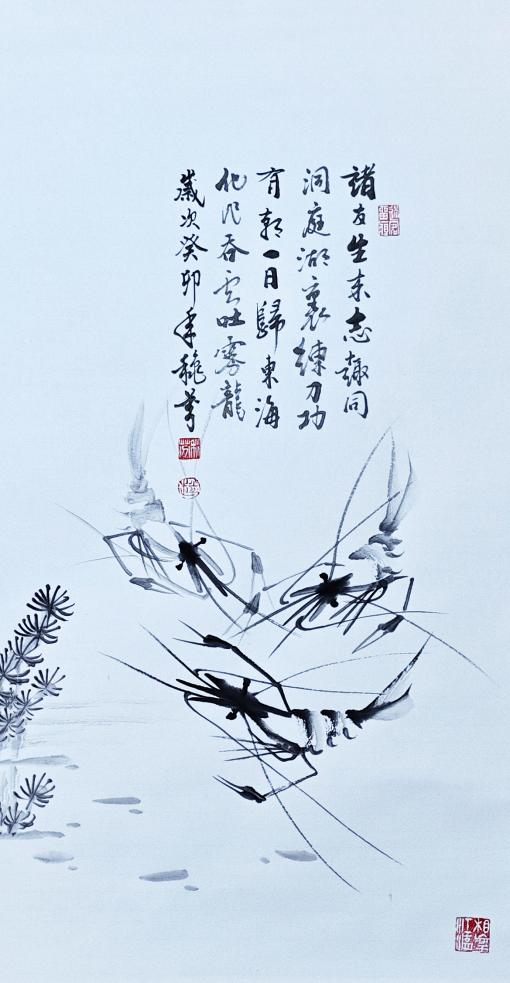 諸友生來志趣同
洞庭湖裏練刀功
有朝一日歸東海
化作吞雲吐霧龍
歲次癸卯年